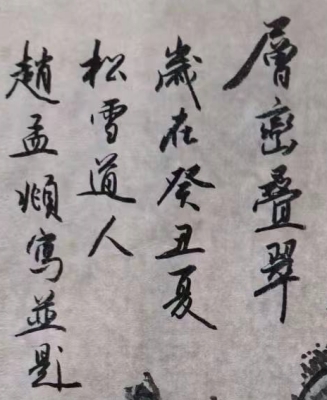 層巒疊翠
歲在癸丑夏
松雪道人
趙孟頫寫並題